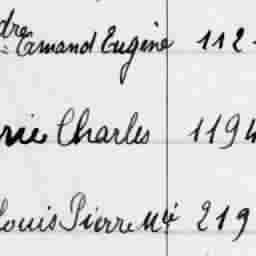 dre
Armand Eugène 112
rie Charles 1194
Louis Pierre Mie 219